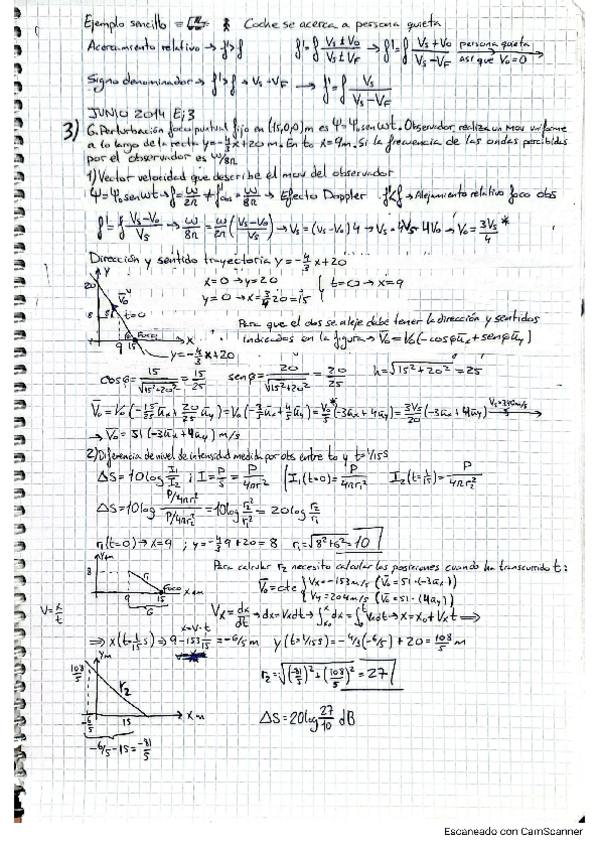 Ejemplo sencillo = Coche se acerca a persona quieta
Acercamiento relativo → f'>f f'=f (Vs±Vo)/(Vs±VF) → f'=f (Vs+Vo)/(Vs-VF) persona quieta así que Vo=0
Signo denominador → f'>f → Vs-VF → f'=f Vs/(Vs-VF)
JUNIO 2014 Ej3
3) G. Perturbación foco puntual fijo en (15,0,0)m es Ψ=Ψo senωt. Observador, realiza un mov uniforme
a lo largo de la recta y=-4/3 x+20 m. En to x=9m. Si la frecuencia de las ondas percibidas
por el observador es ω/8π
1) Vector velocidad que describe el mov del observador
Ψ=Ψo senωt → f=ω/2π ≠ f'obs=ω/8π → Efecto Doppler f'<f → Alejamiento relativo foco obs
f'=f (Vs-Vo)/Vs → ω/8π = ω/2π ((Vs-Vo)/Vs) → Vs=(Vs-Vo)4 → Vs=4Vs-4Vo → Vo=3Vs/4 *
Dirección y sentido trayectoria y=-4/3 x+20
x=0 → y=20
y=0 → x=3/4 20=15 { t=0 → x=9
20 Y
Vo
8 t=0
9 15 Foco X
y=-4/3 x+20
Para que el obs se aleje debe tener la dirección y sentidos
indicados en la figura → Vo=Vo(-cosφux+senφuy)
cosφ=15/√(15²+20²)=15/25 senφ=20/√(15²+20²)=20/25 h=√(15²+20²)=25
Vo=Vo(-15/25 ux+20/25 uy)=Vo(-3/5 ux+4/5 uy)=Vo*/5(-3ux+4uy)=3Vs/20(-3ux+4uy) Vs=340m/s →
→ Vo=51(-3ux+4uy) m/s
2) Diferencia de nivel de intensidad medida por obs entre to y t=1/15s
ΔS=10log I1/I2 ; I=P/S=P/4πr² { I1(t=0)=P/4πr1² I2(t=1/15)=P/4πr2²
ΔS=10log (P/4πr1²)/(P/4πr2²)=10log r2²/r1²=20log r2/r1
r1(t=0) → x=9 ; y=-4/3 9+20=8 r1=√(8²+6²)=10
Y m
8 r1 Foco X m
9 15
6
Para calcular r2 necesito calcular las posiciones cuando ha transcurrido t:
Vo=cte { Vx=-153m/s (Vo=51·(-3ux))
Vy=204m/s (Vo=51·(4uy))
V=x/t
Vx=dx/dt → dx=Vxdt → ∫dx=∫Vxdt → x=xo+Vxt ⟹
x=v·t
⟹ x(t=1/15 s)=9-153 1/15=-6/5 m y(t=1/15s)=-4/3(-6/5)+20=108/5 m
Y m
108/5 r2
-6/5 15 X m
-6/5-15=-81/5
r2=√((-81/5)²+(108/5)²)=27
ΔS=20log 27/10 dB
Escaneado con CamScanner